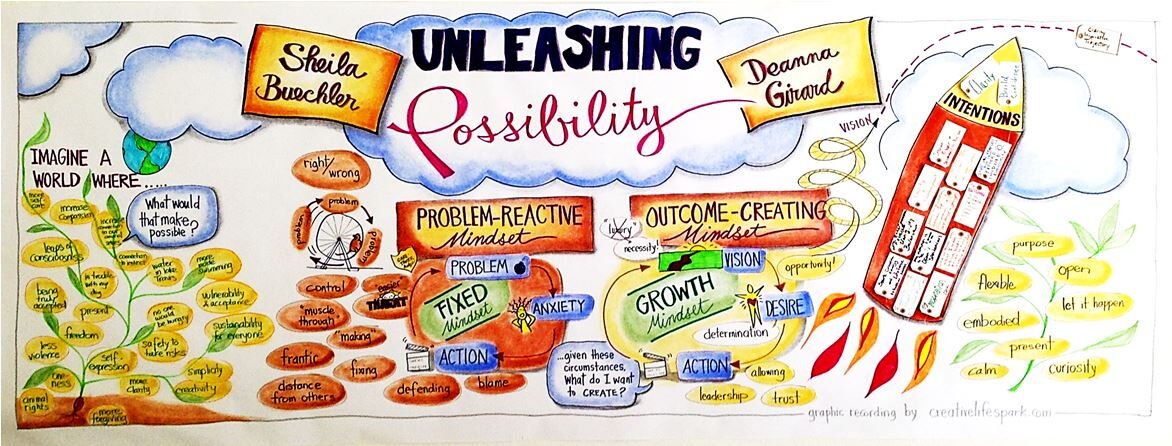 Sheila
Buechler
UNLEASHING
Possibility
Deanna
Girard
VISION
INTENTIONS
Clarity
IMAGINE A
WORLD WHERE.....
What would
that make
possible?
more
self
care
increase
compassion
leaps of
consciousness
connection
to
water
in lake
Travis
more
swimming
being
truly
accepted
in touch
with my
body
present
no one
would
be hungry
vulnerability
& acceptance
freedom
sustainability
for everyone
less
violence
safety to
take risks
self-
expression
simplicity
one-
ness
more
clarity
creativity
animal
rights
more
forgiving
right/
wrong
problem
problem
problem
control
"muscle
through"
"easier"
THREAT
"making"
frantic
fixing
distance
from others
defending
blame
PROBLEM-REACTIVE
Mindset
PROBLEM
FIXED
Mindset
ANXIETY
ACTION
OUTCOME-CREATING
Mindset
"luxury"
necessity!
VISION
opportunity!
GROWTH
Mindset
DESIRE
determination
ACTION
allowing
leadership
trust
...given these
circumstances,
What do I want
to CREATE?
purpose
open
flexible
let it happen
embodied
present
calm
curiosity
graphic recording by creativelifespark.com